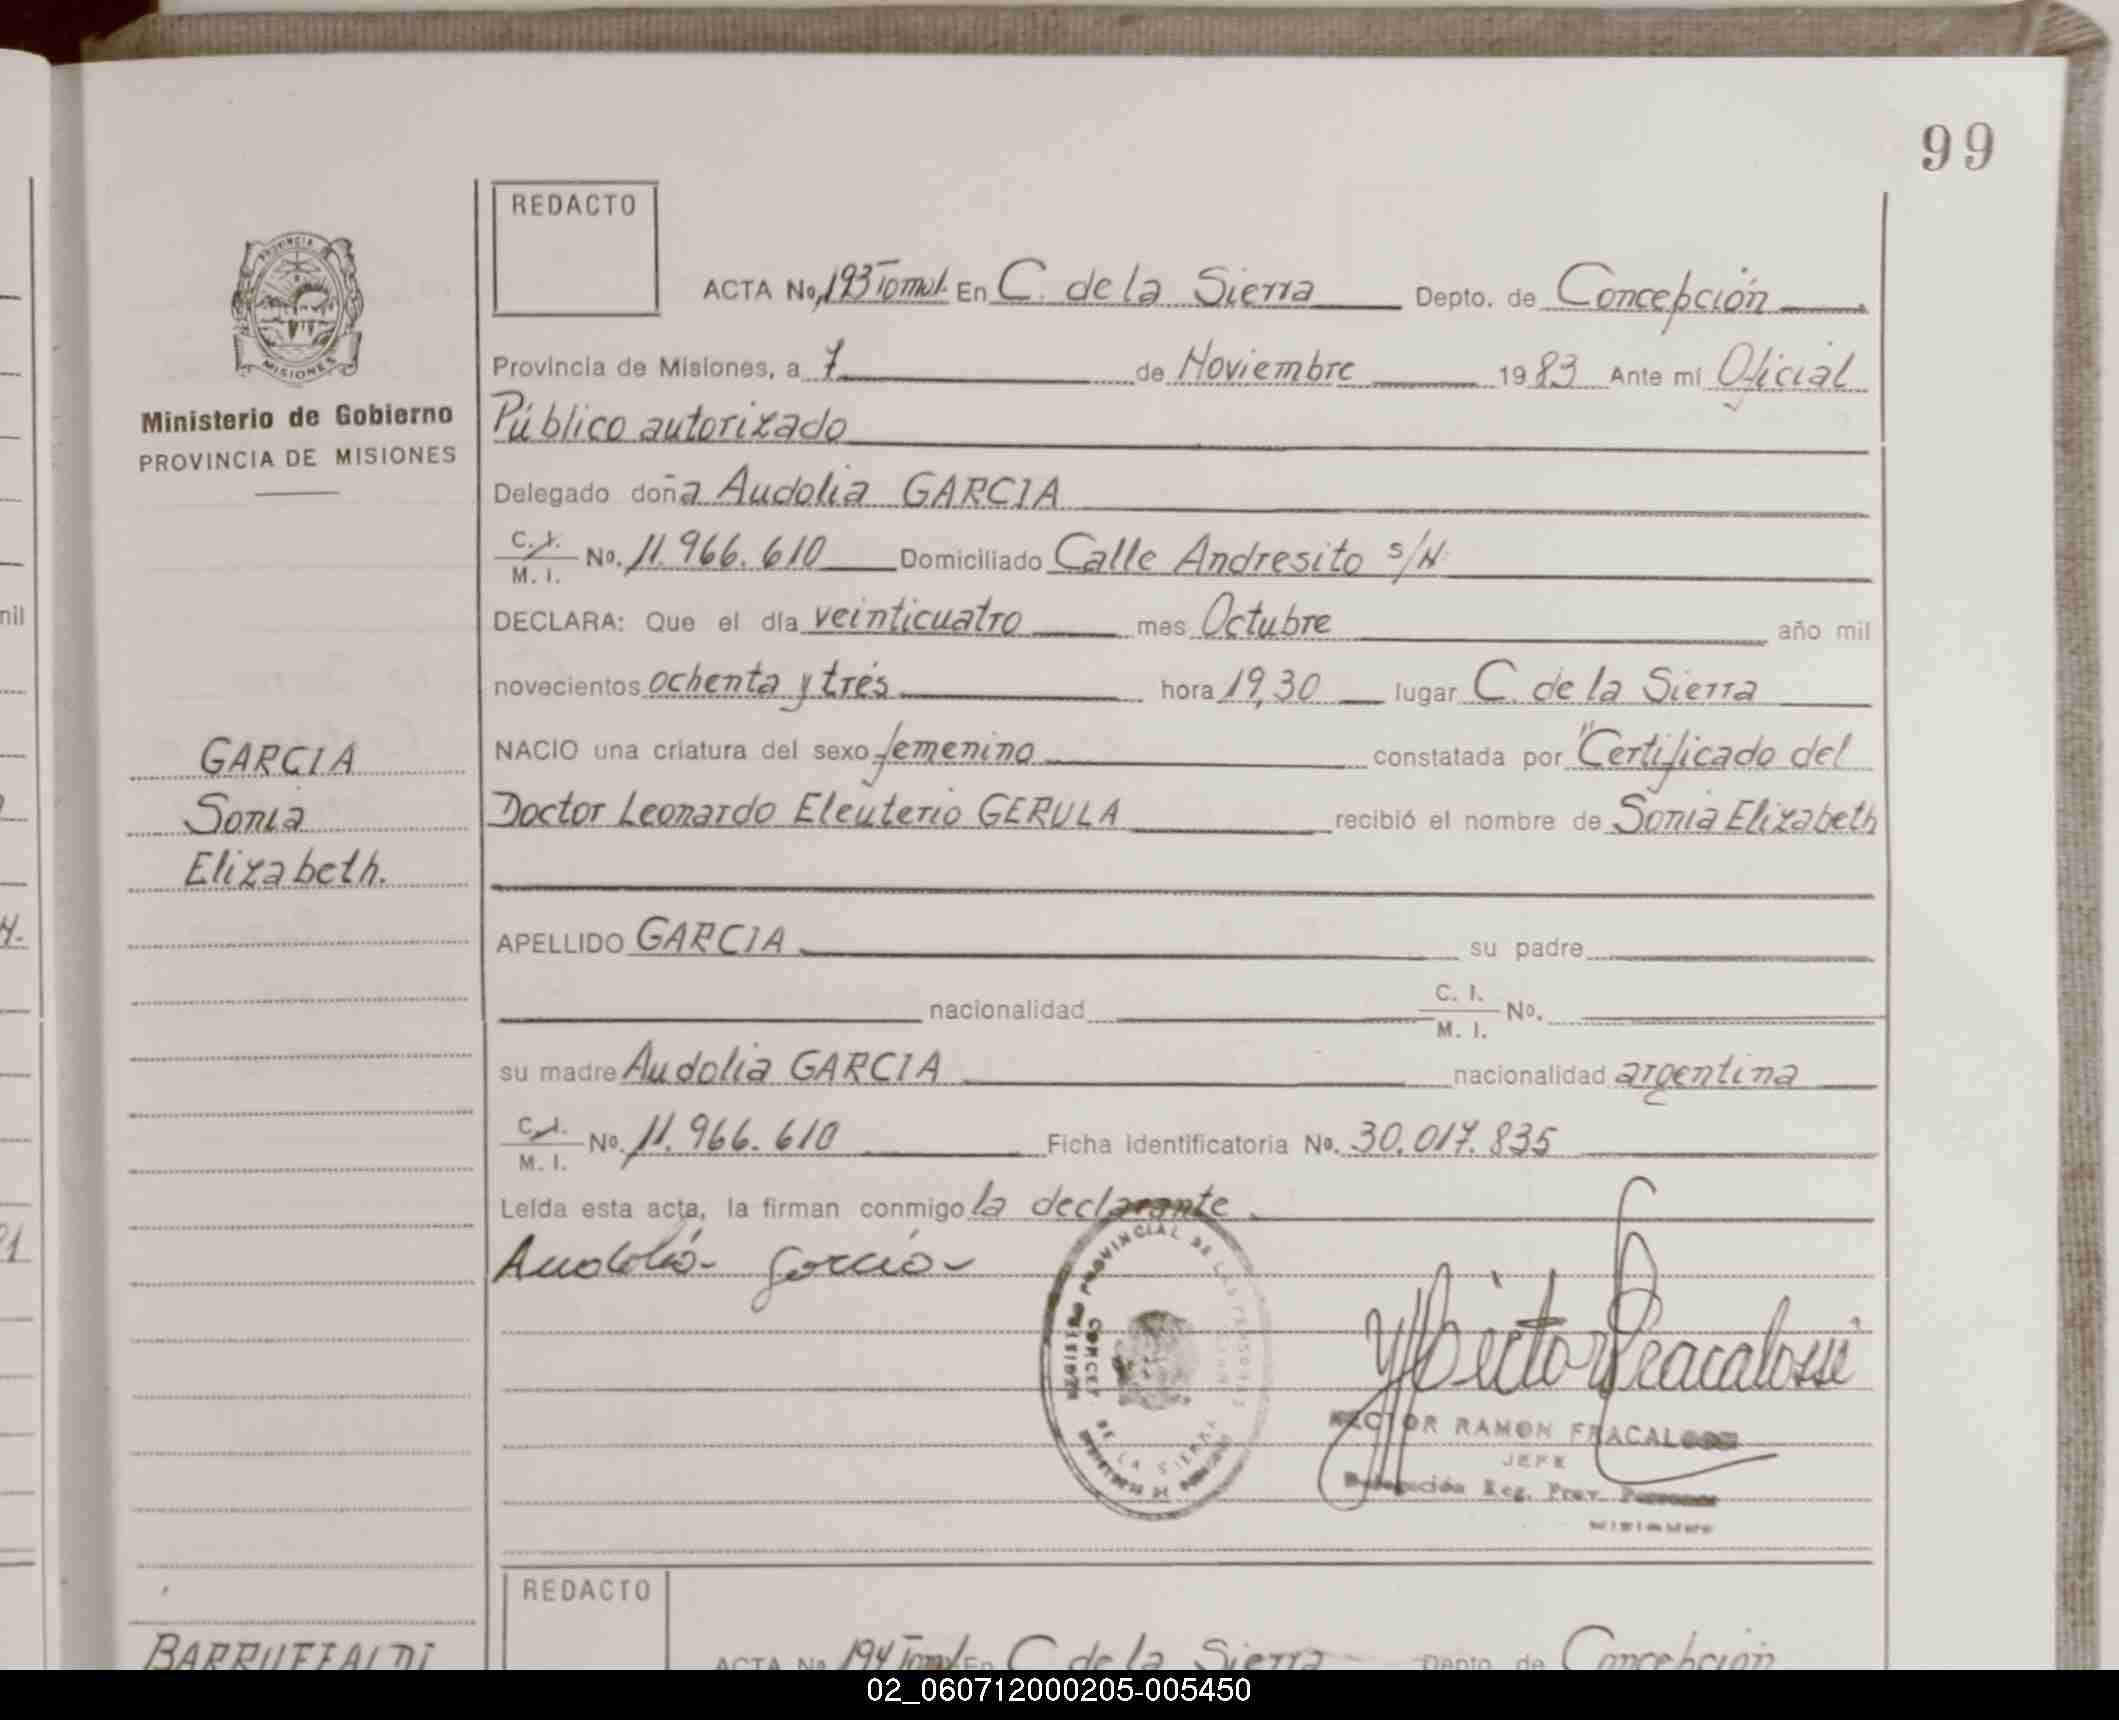 99
REDACTO
ACTA No. 193 Tomo I. En C. de la Sierra Depto. de Concepción
Provincia de Misiones, a 7 de Noviembre 1983 Ante mí Oficial
Público autorizado
Delegado doña Audolia GARCIA
C. I. / M. I. No. 11.966.610 Domiciliado Calle Andresito s/N.
DECLARA: Que el día veinticuatro mes Octubre año mil
novecientos ochenta y trés hora 19,30 lugar C. de la Sierra
NACIO una criatura del sexo femenino constatada por "Certificado del
Doctor Leonardo Eleuterio GERULA recibió el nombre de Sonia Elizabeth
APELLIDO GARCIA su padre
nacionalidad C. I. / M. I. No.
su madre Audolia GARCIA nacionalidad argentina
C. I. / M. I. No. 11.966.610 Ficha identificatoria No. 30.017.835
Leída esta acta, la firman conmigo la declarante
Audolia Garcia
PROVINCIAL DE LAS PERSONAS
DE LA SIERRA
Hector R Fracalossi
HECTOR RAMON FRACALOSSI
JEFE
Delegación Reg. Prov. Personas
MISIONES
PROVINCIA DE
MISIONES
Ministerio de Gobierno
PROVINCIA DE MISIONES
GARCIA
Sonia
Elizabeth.
REDACTO
ACTA No. 194 Tomo I En C de la Sierra Depto. de Concepción
BARRUFFALDI
nil
02_060712000205-005450